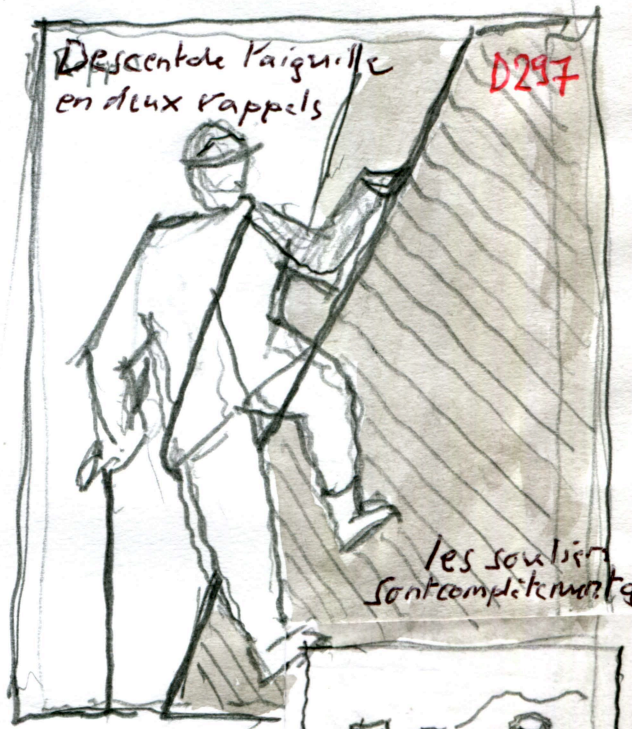 Descent de l'aiguille
en deux rappels
D297
les soulier
sont complètement